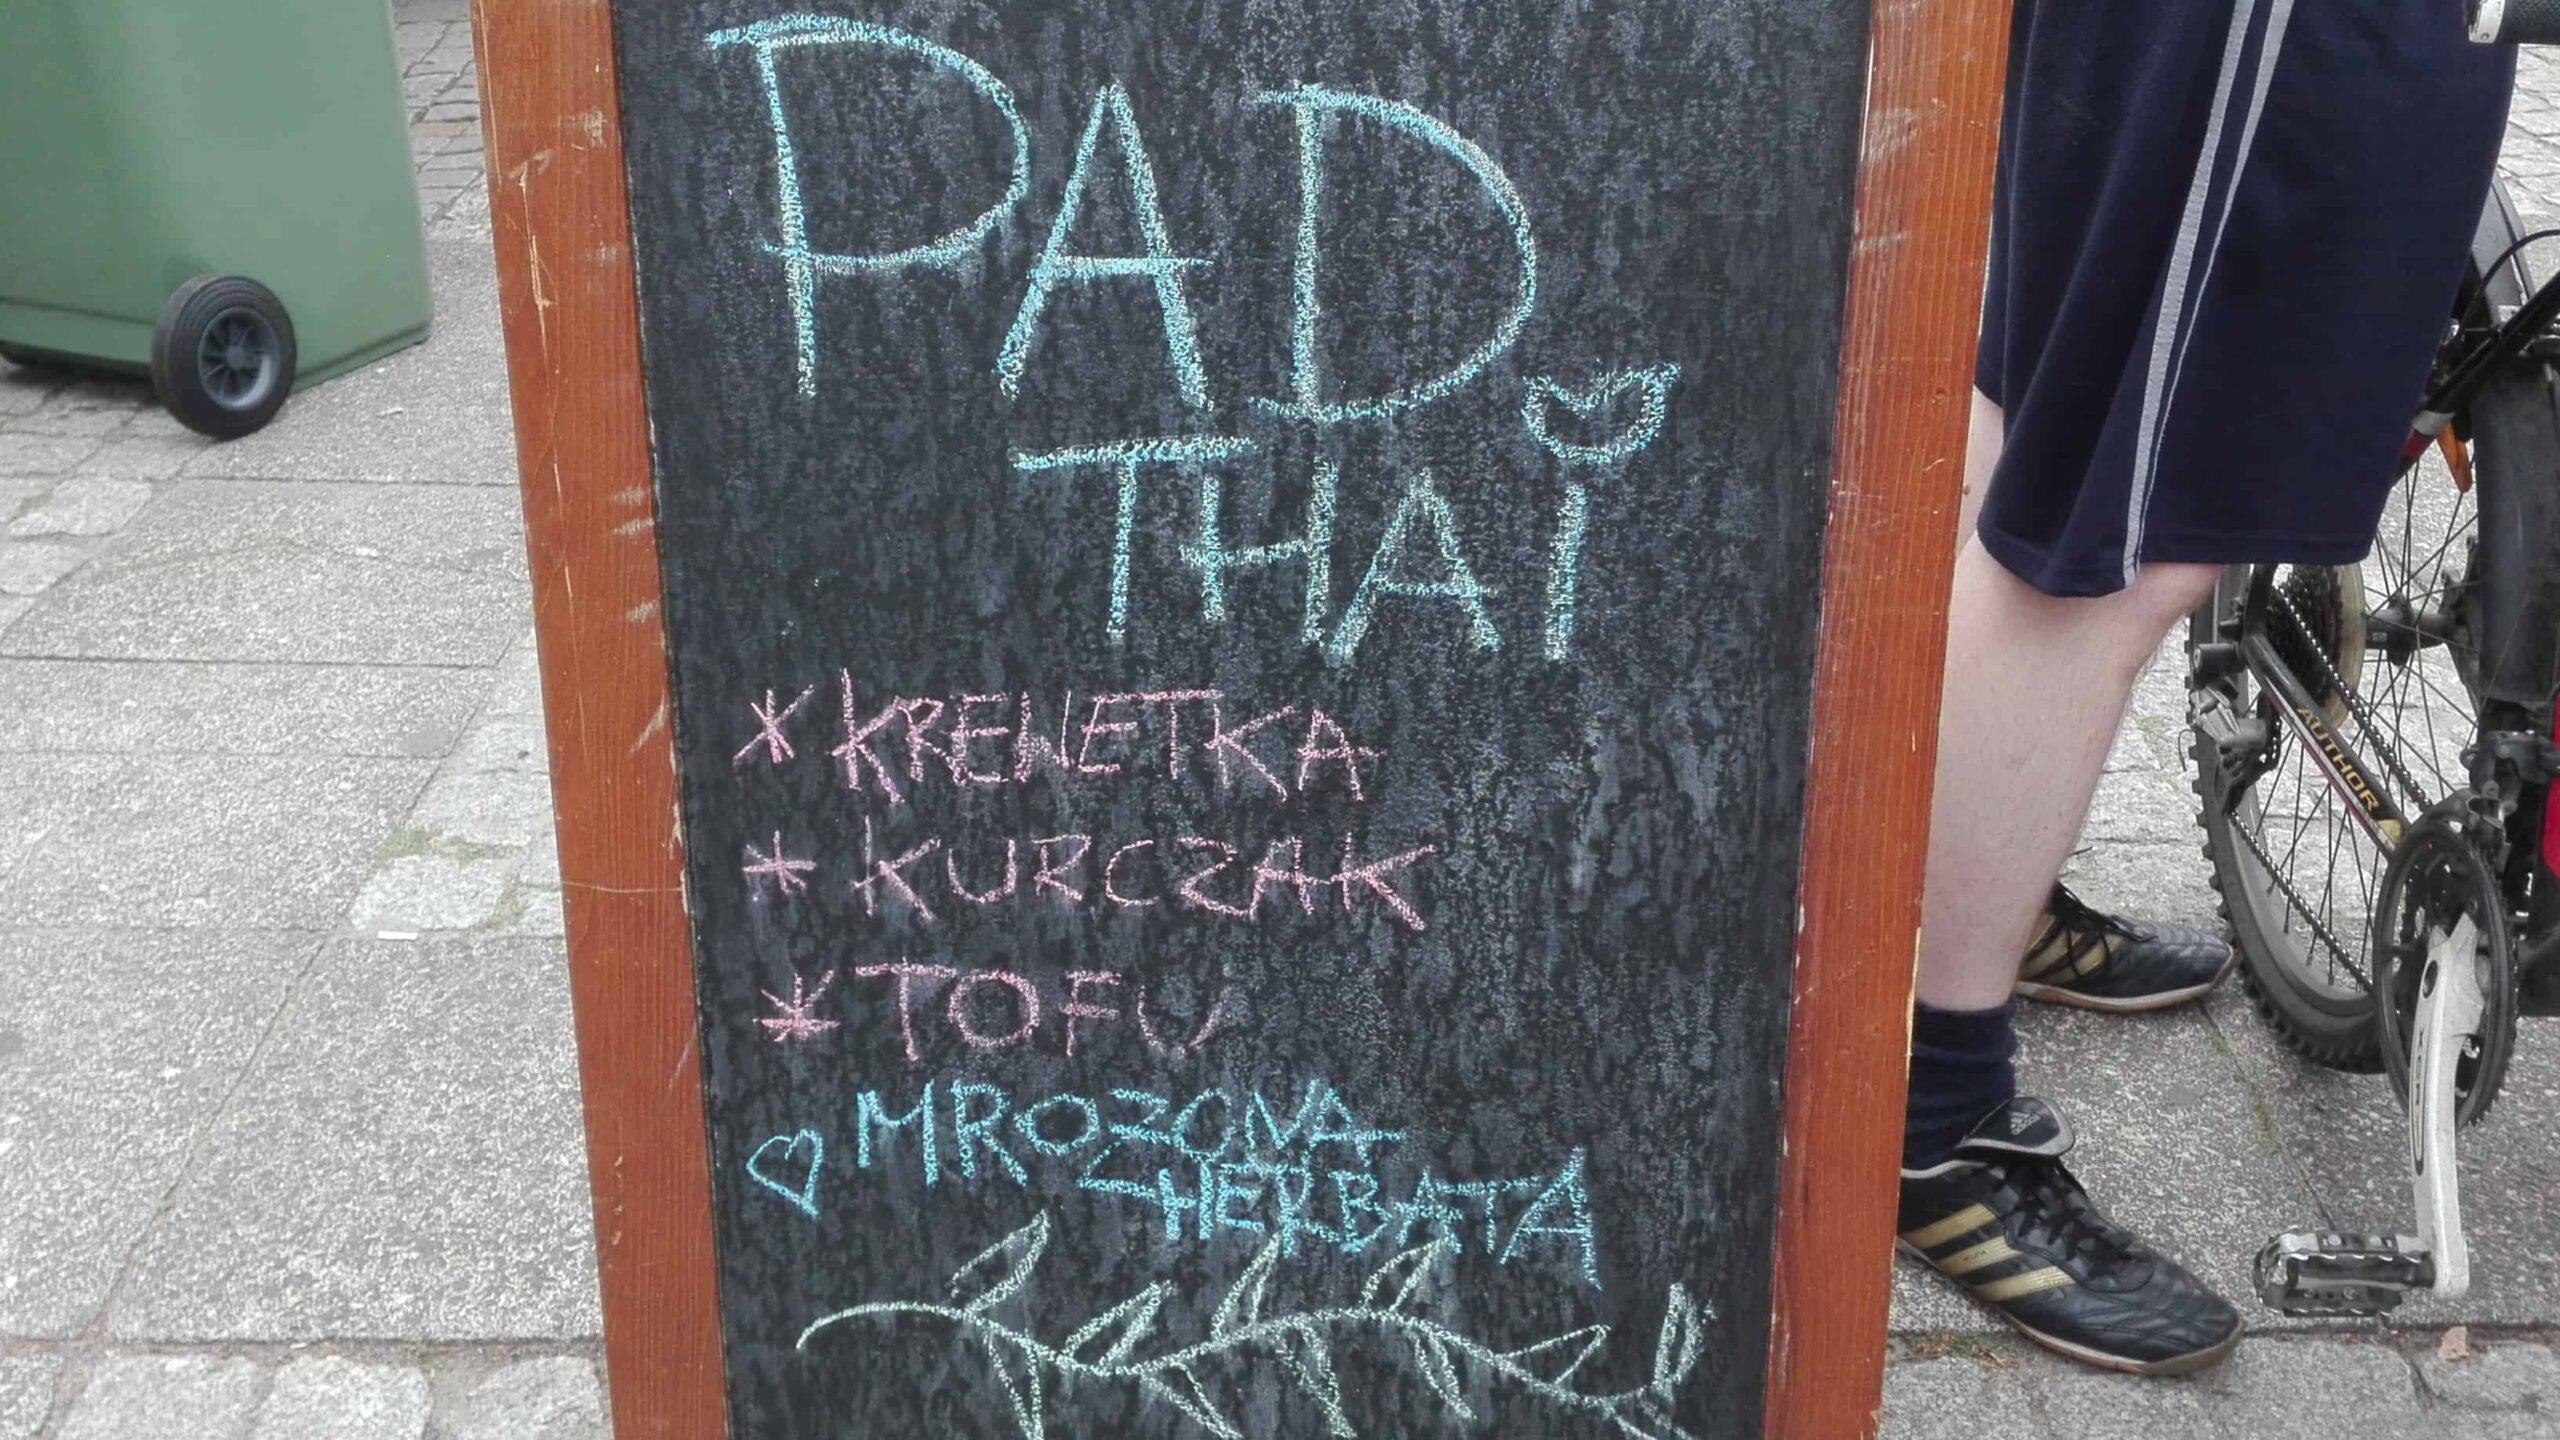 PAD
THAI
* KREWETKA
* KURCZAK
* TOFU
♡ MROZONA
HERBATA
AUTHOR